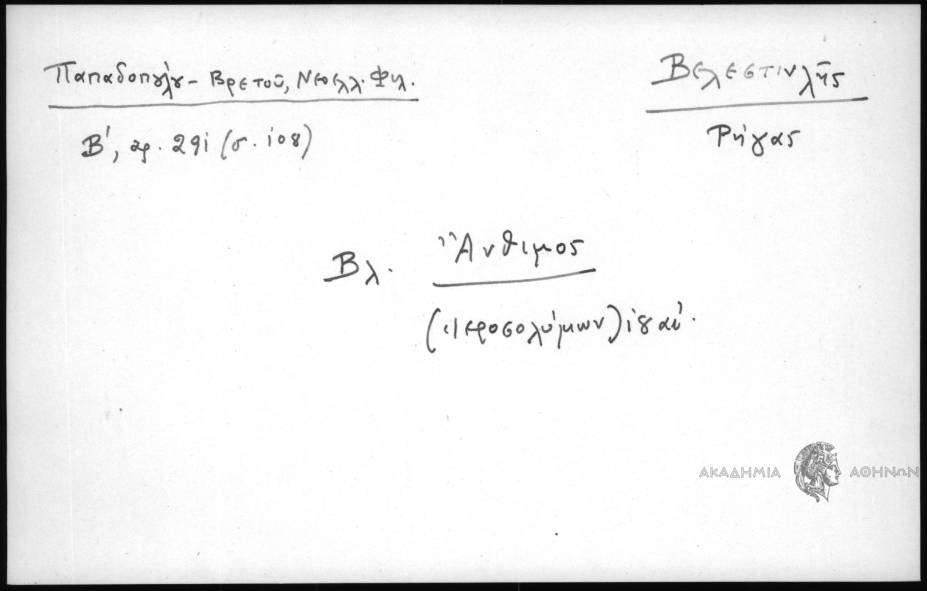 Παπαδοπούλου - Βρετοῦ, Νεοελλ. Φιλ.
Β', αρ. 291 (σ. 108)
Βελεστινλῆς
Ρήγας
Βλ. Ἄνθιμος
(Ἱεροσολύμων)
ΑΚΑΔΗΜΙΑ ΑΘΗΝΩΝ